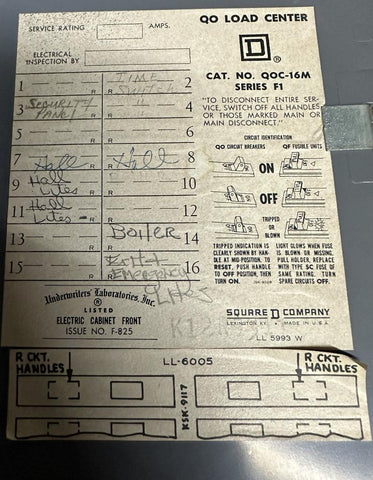 SERVICE RATING AMPS.
ELECTRICAL
INSPECTION BY
1 R TIME SWITCH R 2
3 SECURITY PANEL R " R 4
5 R R 6
7 Hall R Hall R 8
9 Hall Lites R R 10
11 Hall Lites R R 12
13 R Boiler R 14
15 R Exit + Emergency Lites 16
Underwriters' Laboratories, Inc.
LISTED
ELECTRIC CABINET FRONT
ISSUE NO. F-825
QO LOAD CENTER
D
CAT. NO. QOC-16M
SERIES F1
"TO DISCONNECT ENTIRE SER-
VICE, SWITCH OFF ALL HANDLES
OR THOSE MARKED MAIN OR
MAIN DISCONNECT."
CIRCUIT IDENTIFICATION
QO CIRCUIT BREAKERS QF FUSIBLE UNITS
ON
OFF
TRIPPED
OR
BLOWN
TRIPPED INDICATION IS
CLEARLY SHOWN BY HAN-
DLE AT MID-POSITION. TO
RESET, PUSH HANDLE
TO OFF POSITION, THEN
TURN ON.
LIGHT GLOWS WHEN FUSE
IS BLOWN OR MISSING.
PULL HOLDER, REPLACE
WITH TYPE SC FUSE OF
SAME RATING. TURN
SPARE CIRCUITS OFF.
SQUARE D COMPANY
LEXINGTON, KY. MADE IN U.S.A.
LL 5993 W
R CKT.
HANDLES
LL-6005
KSK-9117
R CKT.
HANDLES